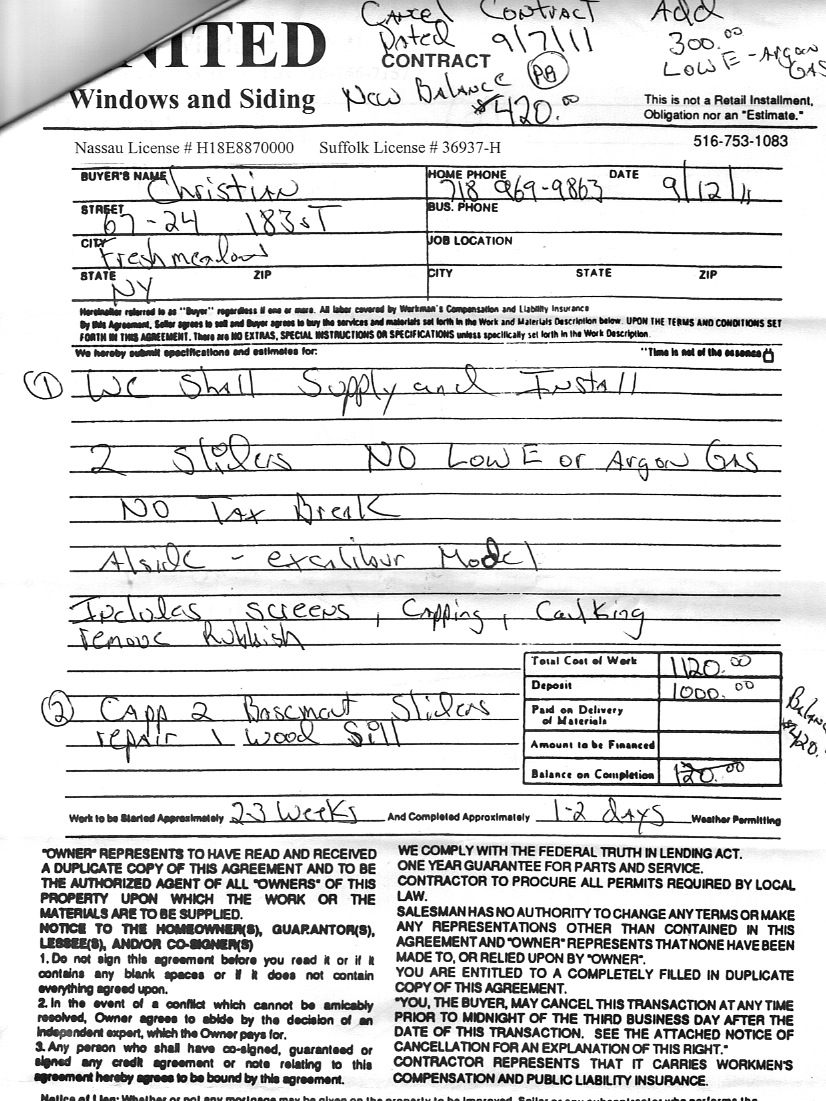 Cancel Contract Add
Dated 9/7/11 300.00
NITED CONTRACT LOW E - Argon
GAS
Windows and Siding New Balance PB
$420.00
This is not a Retail Installment,
Obligation nor an "Estimate."
Nassau License # H18E8870000 Suffolk License # 36937-H 516-753-1083
BUYER'S NAME Christian HOME PHONE 718 969-9863 DATE 9/12/11
STREET 67-24 183 ST BUS. PHONE
CITY Freshmeadows JOB LOCATION
STATE NY ZIP CITY STATE ZIP
Hereinafter referred to as "Buyer" regardless if one or more. All labor covered by Workman's Compensation and Liability Insurance
By this Agreement, Seller agrees to sell and Buyer agrees to buy the services and materials set forth in the Work and Materials Description below. UPON THE TERMS AND CONDITIONS SET
FORTH IN THIS AGREEMENT. There are NO EXTRAS, SPECIAL INSTRUCTIONS OR SPECIFICATIONS unless specifically set forth in the Work Description.
We hereby submit specifications and estimates for: "Time is not of the essence
1 We Shall Supply and Install
2 Sliders NO LOW E or Argon GAS
NO Tax Break
Alside - excalibur Model
Includes screens, Capping, Caulking
remove Rubbish
Total Cost of Work 1120.00
Deposit 1000.00
2 Capp 2 Basement Sliders
repair 1 Wood Sill
Paid on Delivery
of Materials
Balance
$420.00
Amount to be Financed
Balance on Completion 120.00
Work to be Started Approximately 2-3 weeks And Completed Approximately 1-2 days Weather Permitting
"OWNER" REPRESENTS TO HAVE READ AND RECEIVED
A DUPLICATE COPY OF THIS AGREEMENT AND TO BE
THE AUTHORIZED AGENT OF ALL "OWNERS" OF THIS
PROPERTY UPON WHICH THE WORK OR THE
MATERIALS ARE TO BE SUPPLIED.
NOTICE TO THE HOMEOWNER(S), GUARANTOR(S),
LESSEE(S), AND/OR CO-SIGNER(S)
1. Do not sign this agreement before you read it or if it
contains any blank spaces or if it does not contain
everything agreed upon.
2. In the event of a conflict which cannot be amicably
resolved, Owner agrees to abide by the decision of an
independent expert, which the Owner pays for.
3. Any person who shall have co-signed, guaranteed or
signed any credit agreement or note relating to this
agreement hereby agrees to be bound by this agreement.
WE COMPLY WITH THE FEDERAL TRUTH IN LENDING ACT.
ONE YEAR GUARANTEE FOR PARTS AND SERVICE.
CONTRACTOR TO PROCURE ALL PERMITS REQUIRED BY LOCAL
LAW.
SALESMAN HAS NO AUTHORITY TO CHANGE ANY TERMS OR MAKE
ANY REPRESENTATIONS OTHER THAN CONTAINED IN THIS
AGREEMENT AND "OWNER" REPRESENTS THAT NONE HAVE BEEN
MADE TO, OR RELIED UPON BY "OWNER".
YOU ARE ENTITLED TO A COMPLETELY FILLED IN DUPLICATE
COPY OF THIS AGREEMENT.
"YOU, THE BUYER, MAY CANCEL THIS TRANSACTION AT ANY TIME
PRIOR TO MIDNIGHT OF THE THIRD BUSINESS DAY AFTER THE
DATE OF THIS TRANSACTION. SEE THE ATTACHED NOTICE OF
CANCELLATION FOR AN EXPLANATION OF THIS RIGHT."
CONTRACTOR REPRESENTS THAT IT CARRIES WORKMEN'S
COMPENSATION AND PUBLIC LIABILITY INSURANCE.